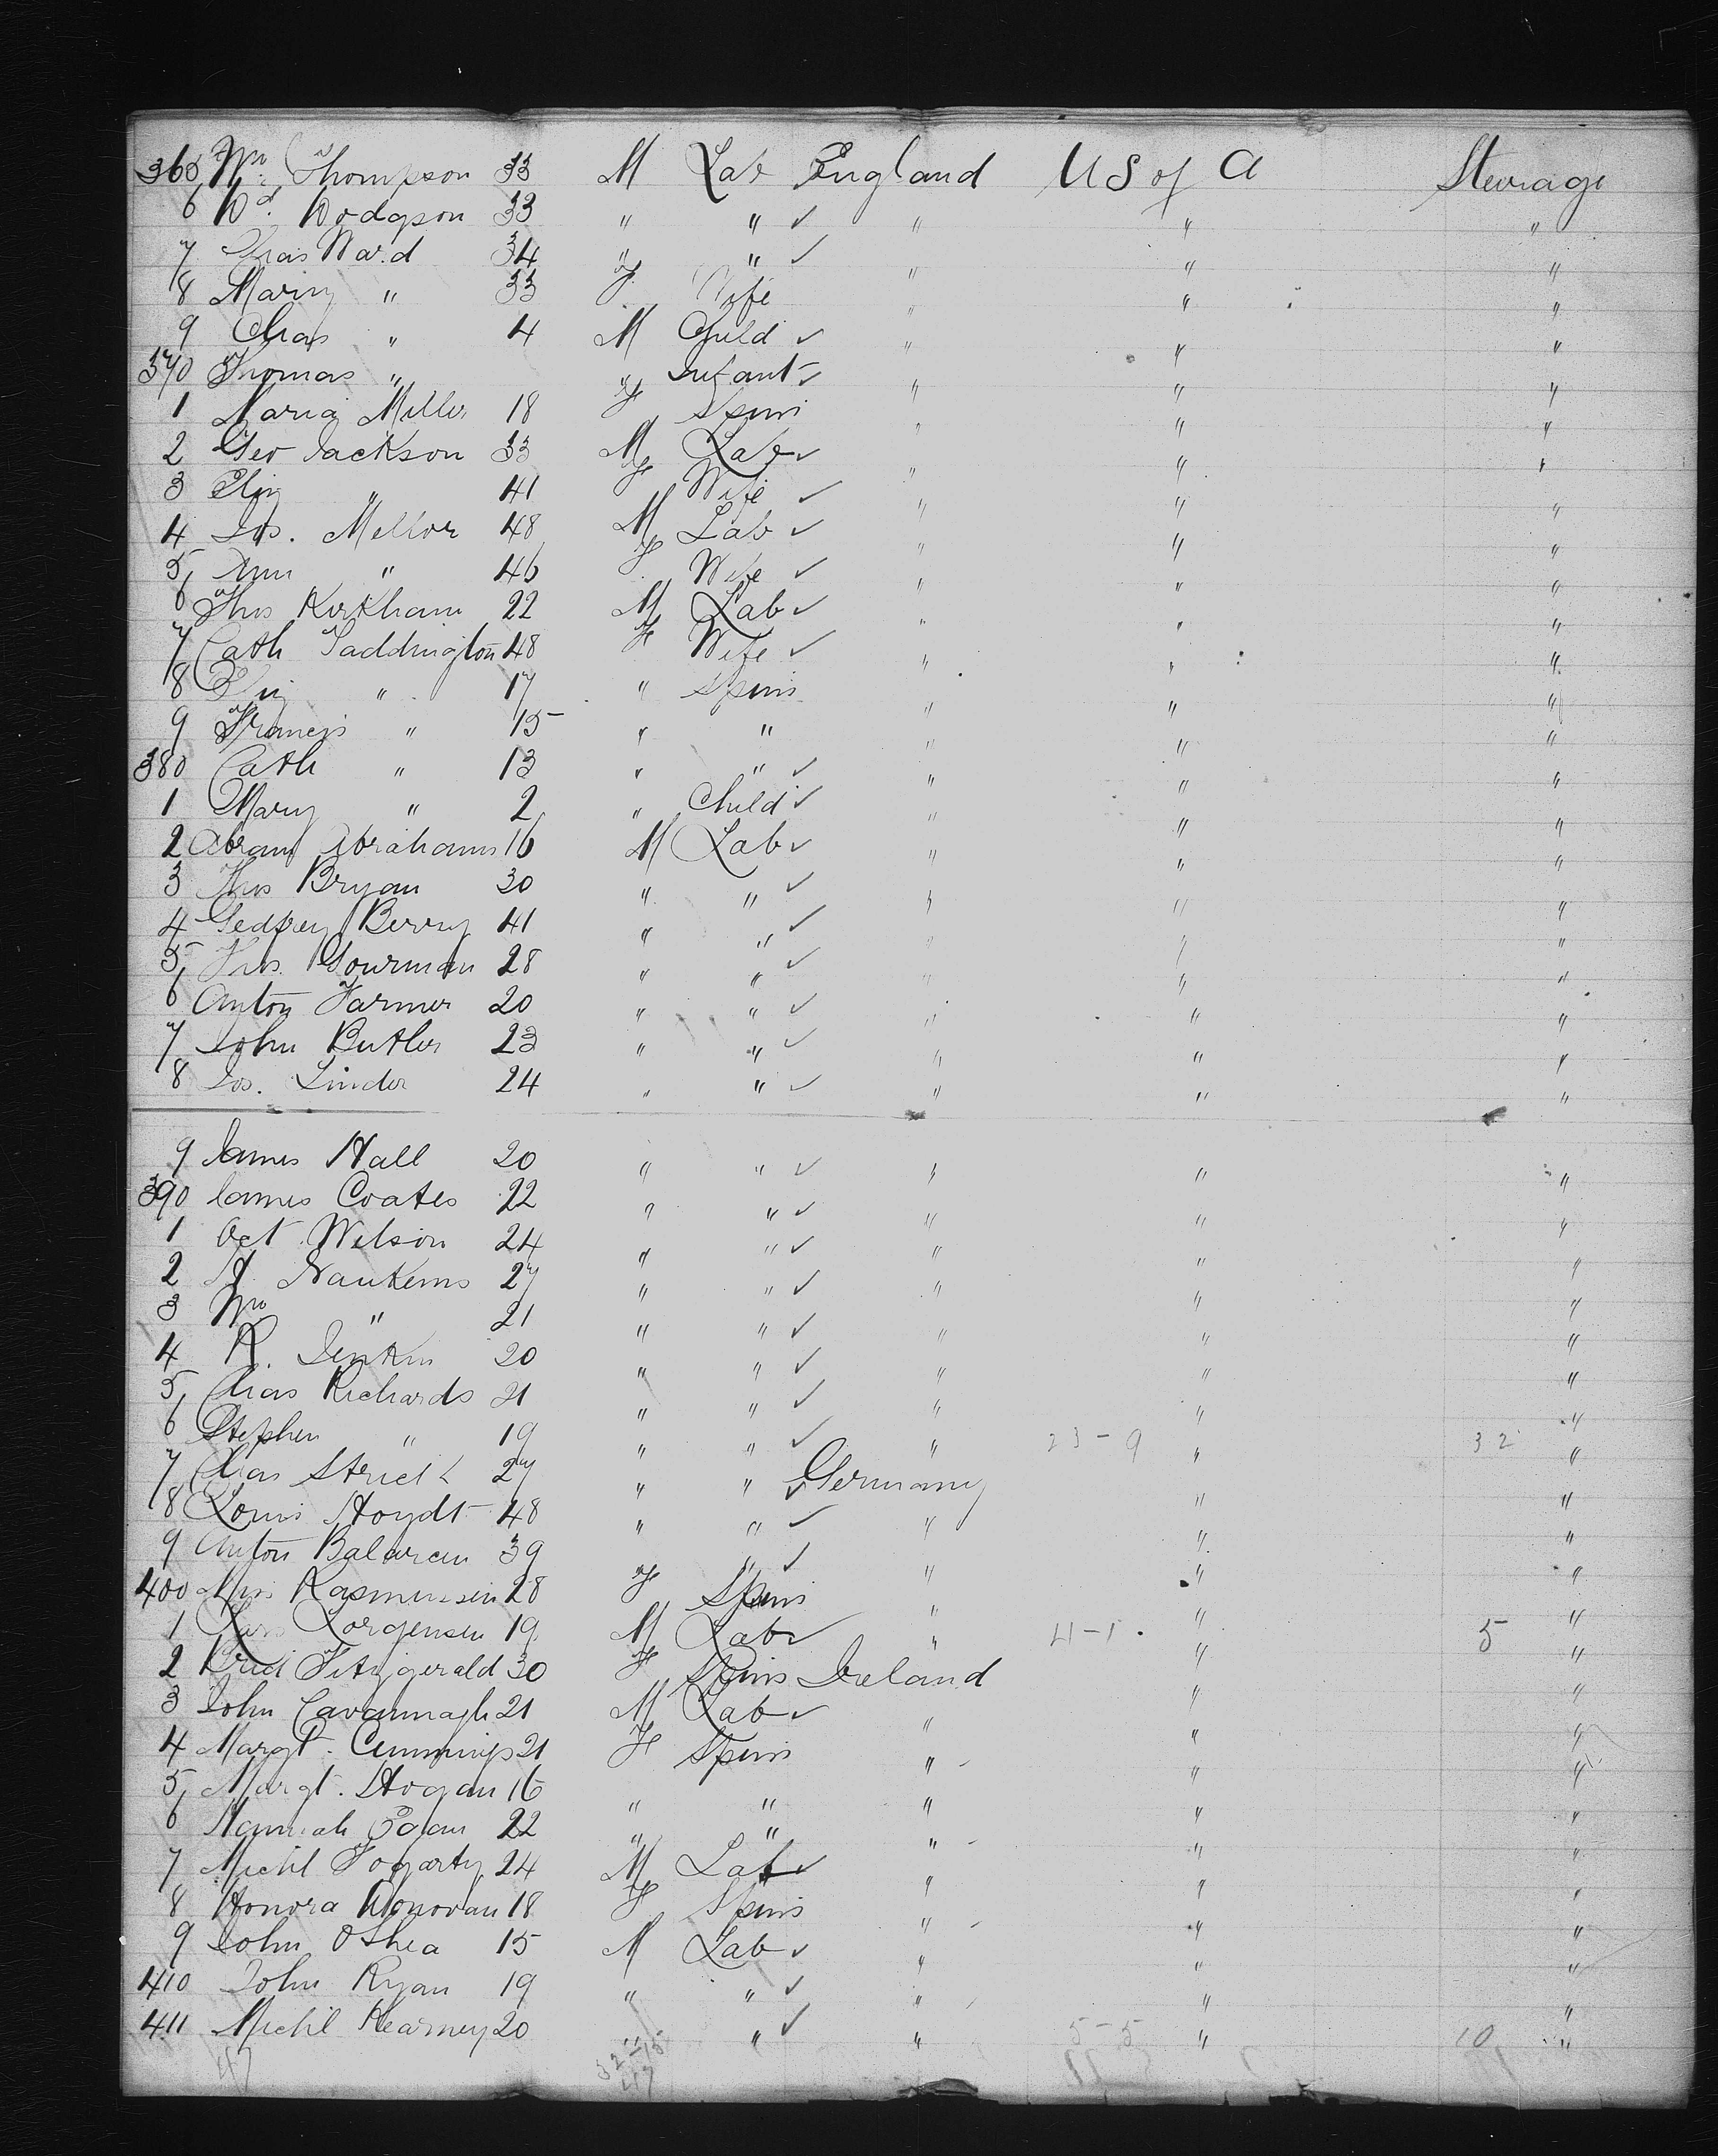 365 Wm Thompson 33 M Lab England US of A Steerage
6 Wd. Dodgson 33 " " ✓ " " "
7 Chas Ward 34 " " ✓ " "
8 Mary " 33 F Wife " " "
9 Chas " 4 M Child ✓ " " "
370 Thomas " " Infant ✓ " " "
1 Maria Miller 18 F Spins " " "
2 Geo Jackson 33 M Lab ✓ " " "
3 Eliz " 41 F Wife ✓ " " "
4 Jos. Mellor 48 M Lab ✓ " " "
5 Ann " 46 F Wife ✓ " " "
6 Thos Kirkham 22 M Lab ✓ " " "
7 Cath Saddington 48 F Wife ✓ " " "
8 Eliz " 17 " Spins " " "
9 Francis " 15 " " " " "
380 Cath " 13 " " ✓ " " "
1 Mary " 2 " Child ✓ " " "
2 Abram Abrahams 16 M Lab ✓ " " "
3 Thos Bryan 30 " " ✓ " " "
4 Berry 41 " " ✓ " " "
5 Thos. Gourman 28 " " ✓ " " "
6 Anton Farmer 20 " " ✓ " " "
7 John Butler 23 " " ✓ " " "
8 Jos. Linder 24 " " ✓ " " "
9 James Hall 20 " " ✓ " " "
390 James Coates 22 " " ✓ " " "
1 Oct. Wilson 24 " " ✓ " " "
2 Nankems 27 " " ✓ " " "
3 Wm " 21 " " ✓ " " "
4 R. Jenkin 20 " " ✓ " "
5 Chas Richards 21 " " ✓ " " "
6 Stephen " 19 " " ✓ " 23-9 " 32 "
7 Chas 27 " " ✓ Germany " "
8 Louis Hoydt 48 " " ✓ " " "
9 Anton Balarein 39 " ✓ " " "
400 Miss Rasmussen 28 F Spins " " "
1 Lars Jorgensen 19 M Lab ✓ " 4-1 " 5 "
2 Brid Fitzgerald 30 F Spins Ireland " "
3 John Cavannagh 21 M Lab ✓ " " "
4 Margt. Cummings 21 F Spins " " "
5 Margt. Hogan 16 " " " " "
6 Hannah Egan 22 " " " " "
7 Michl Fogarty 24 M Lab ✓ " " "
8 Honora Donovan 18 F Spins " " "
9 John OShea 15 M Lab ✓ " " "
410 John Ryan 19 " " ✓ " " "
411 Michl Kearney 20 " " ✓ " 5-5 " 10 "
47 32 15
47